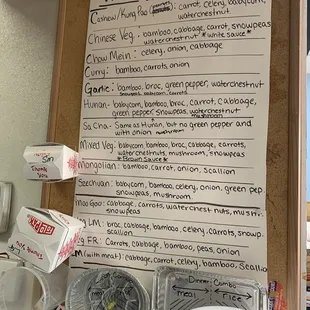 Cashew/Kung Pao: carrot, celery, babycorn,
waterchestnut
Chinese Veg.: bamboo, cabbage, carrot, snowpeas
waterchestnut *White Sauce*
Chow Mein: celery, onion, cabbage
Curry: bamboo, carrots, onion
Garlic: bamboo, broc, green pepper, waterchestnut
Hunan- babycorn, bamboo, broc, carrot, cabbage,
green pepper, snowpeas, waterchestnut
mushroom
Sa Cha- Same as Hunan, but no green pepper and
with onion mushroom
Mixed Veg: bamboo, babycorn, broc, cabbage, carrots,
waterchestnuts, mushroom, snowpeas
*Brown Sauce*
Mongolian: bamboo, carrot, onion, scallion
Szechuan: babycorn, bamboo, celery, onion, green pep
snowpeas, mushroom
Moo Goo: cabbage, carrots, waterchestnuts, mush
snowpeas
LM: broc, cabbage, bamboo, celery, carrots, snowp
scallion
FR: Carrots, cabbage, bamboo, peas, onion
LM (with meat): cabbage, carrot, celery, bamboo, Scallio
Thank
You
Dinner Combo
meat
Rice